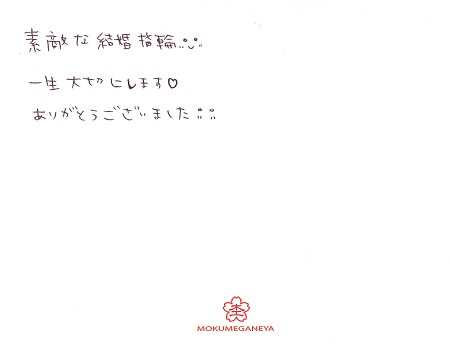 素敵な結婚指輪
一生大切にします♡
ありがとうございました
杢
MOKUMEGANEYA